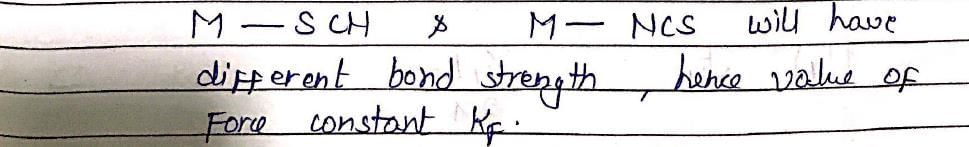 M — SCH & M — NCS will have
different bond strength, hence value of
Force constant KF.